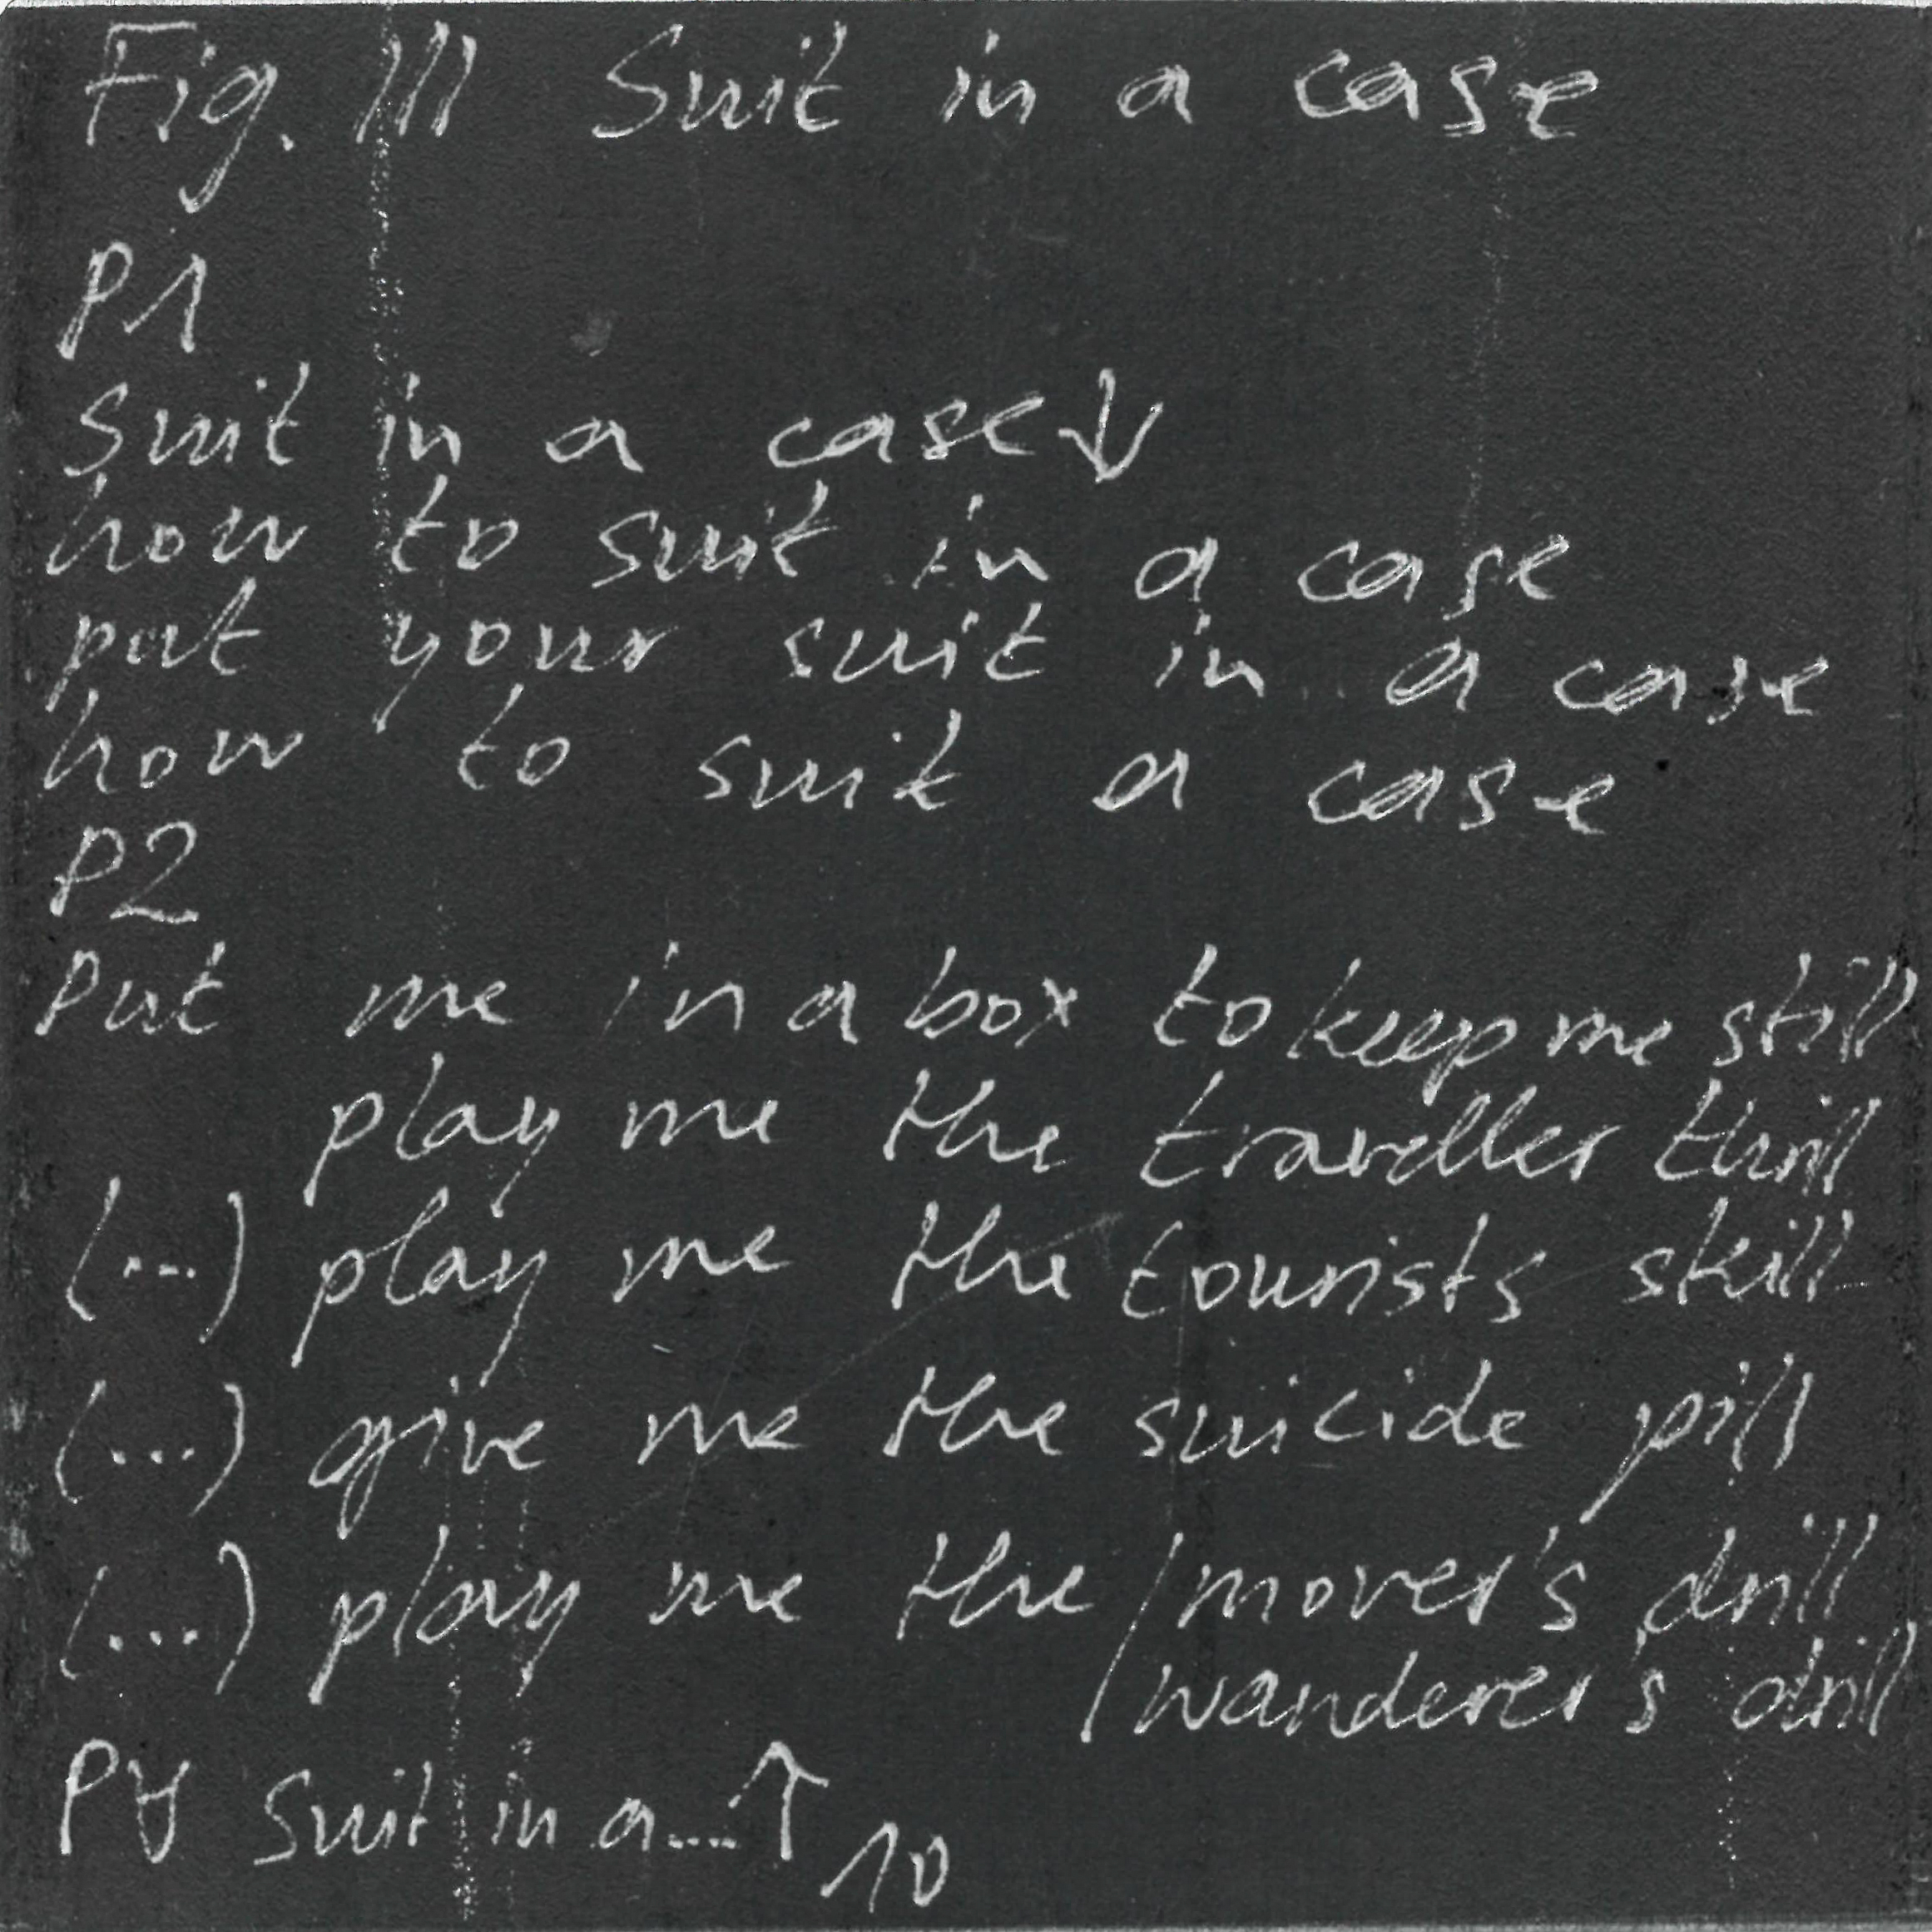 Fig. III Suit in a case
P1
Suit in a case ↓
how to suit in a case
put your suit in a case
how to suit a case
P2
Put me in a box to keep me still
play me the traveller thrill
(...) play me the tourists skill
(...) give me the suicide pill
(...) play me the / mover's drill
/ wanderer's drill
P∀ Suit in a.... ↑ 10